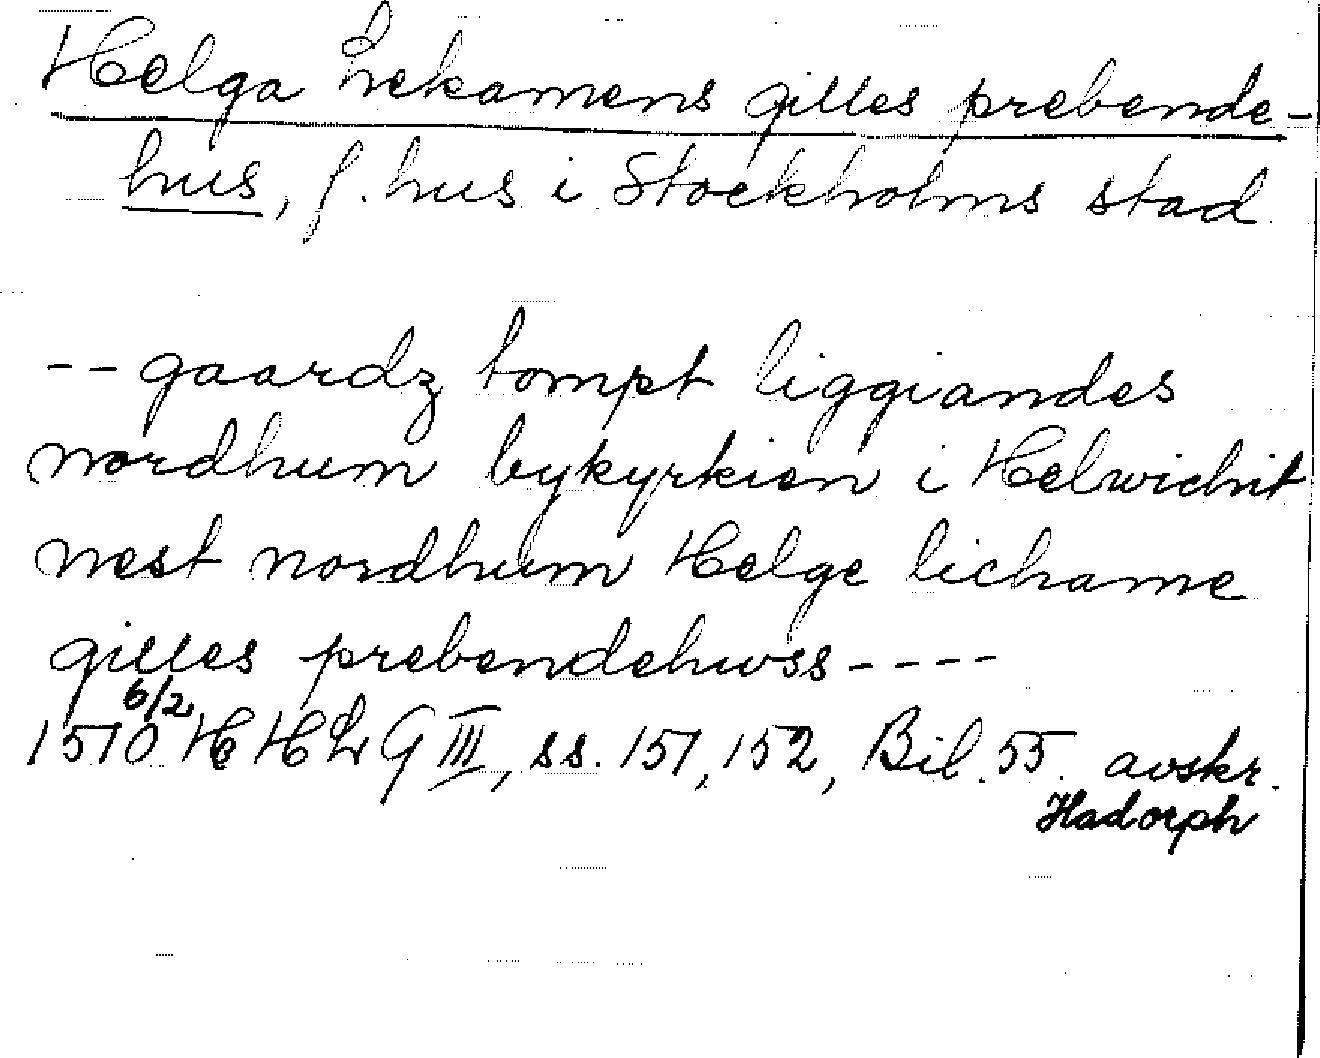 Helga Lekamens gilles prebende-
hus, f. hus i Stockholms stad
-- gaardz tompt liggiandes
nordhum bykyrkien i Helwichit
nest nordhum Helge lichame
gilles prebendehwss----
6/2
1510 HHLG III, ss. 151, 152, Bil. 55. avskr.
Hadorph